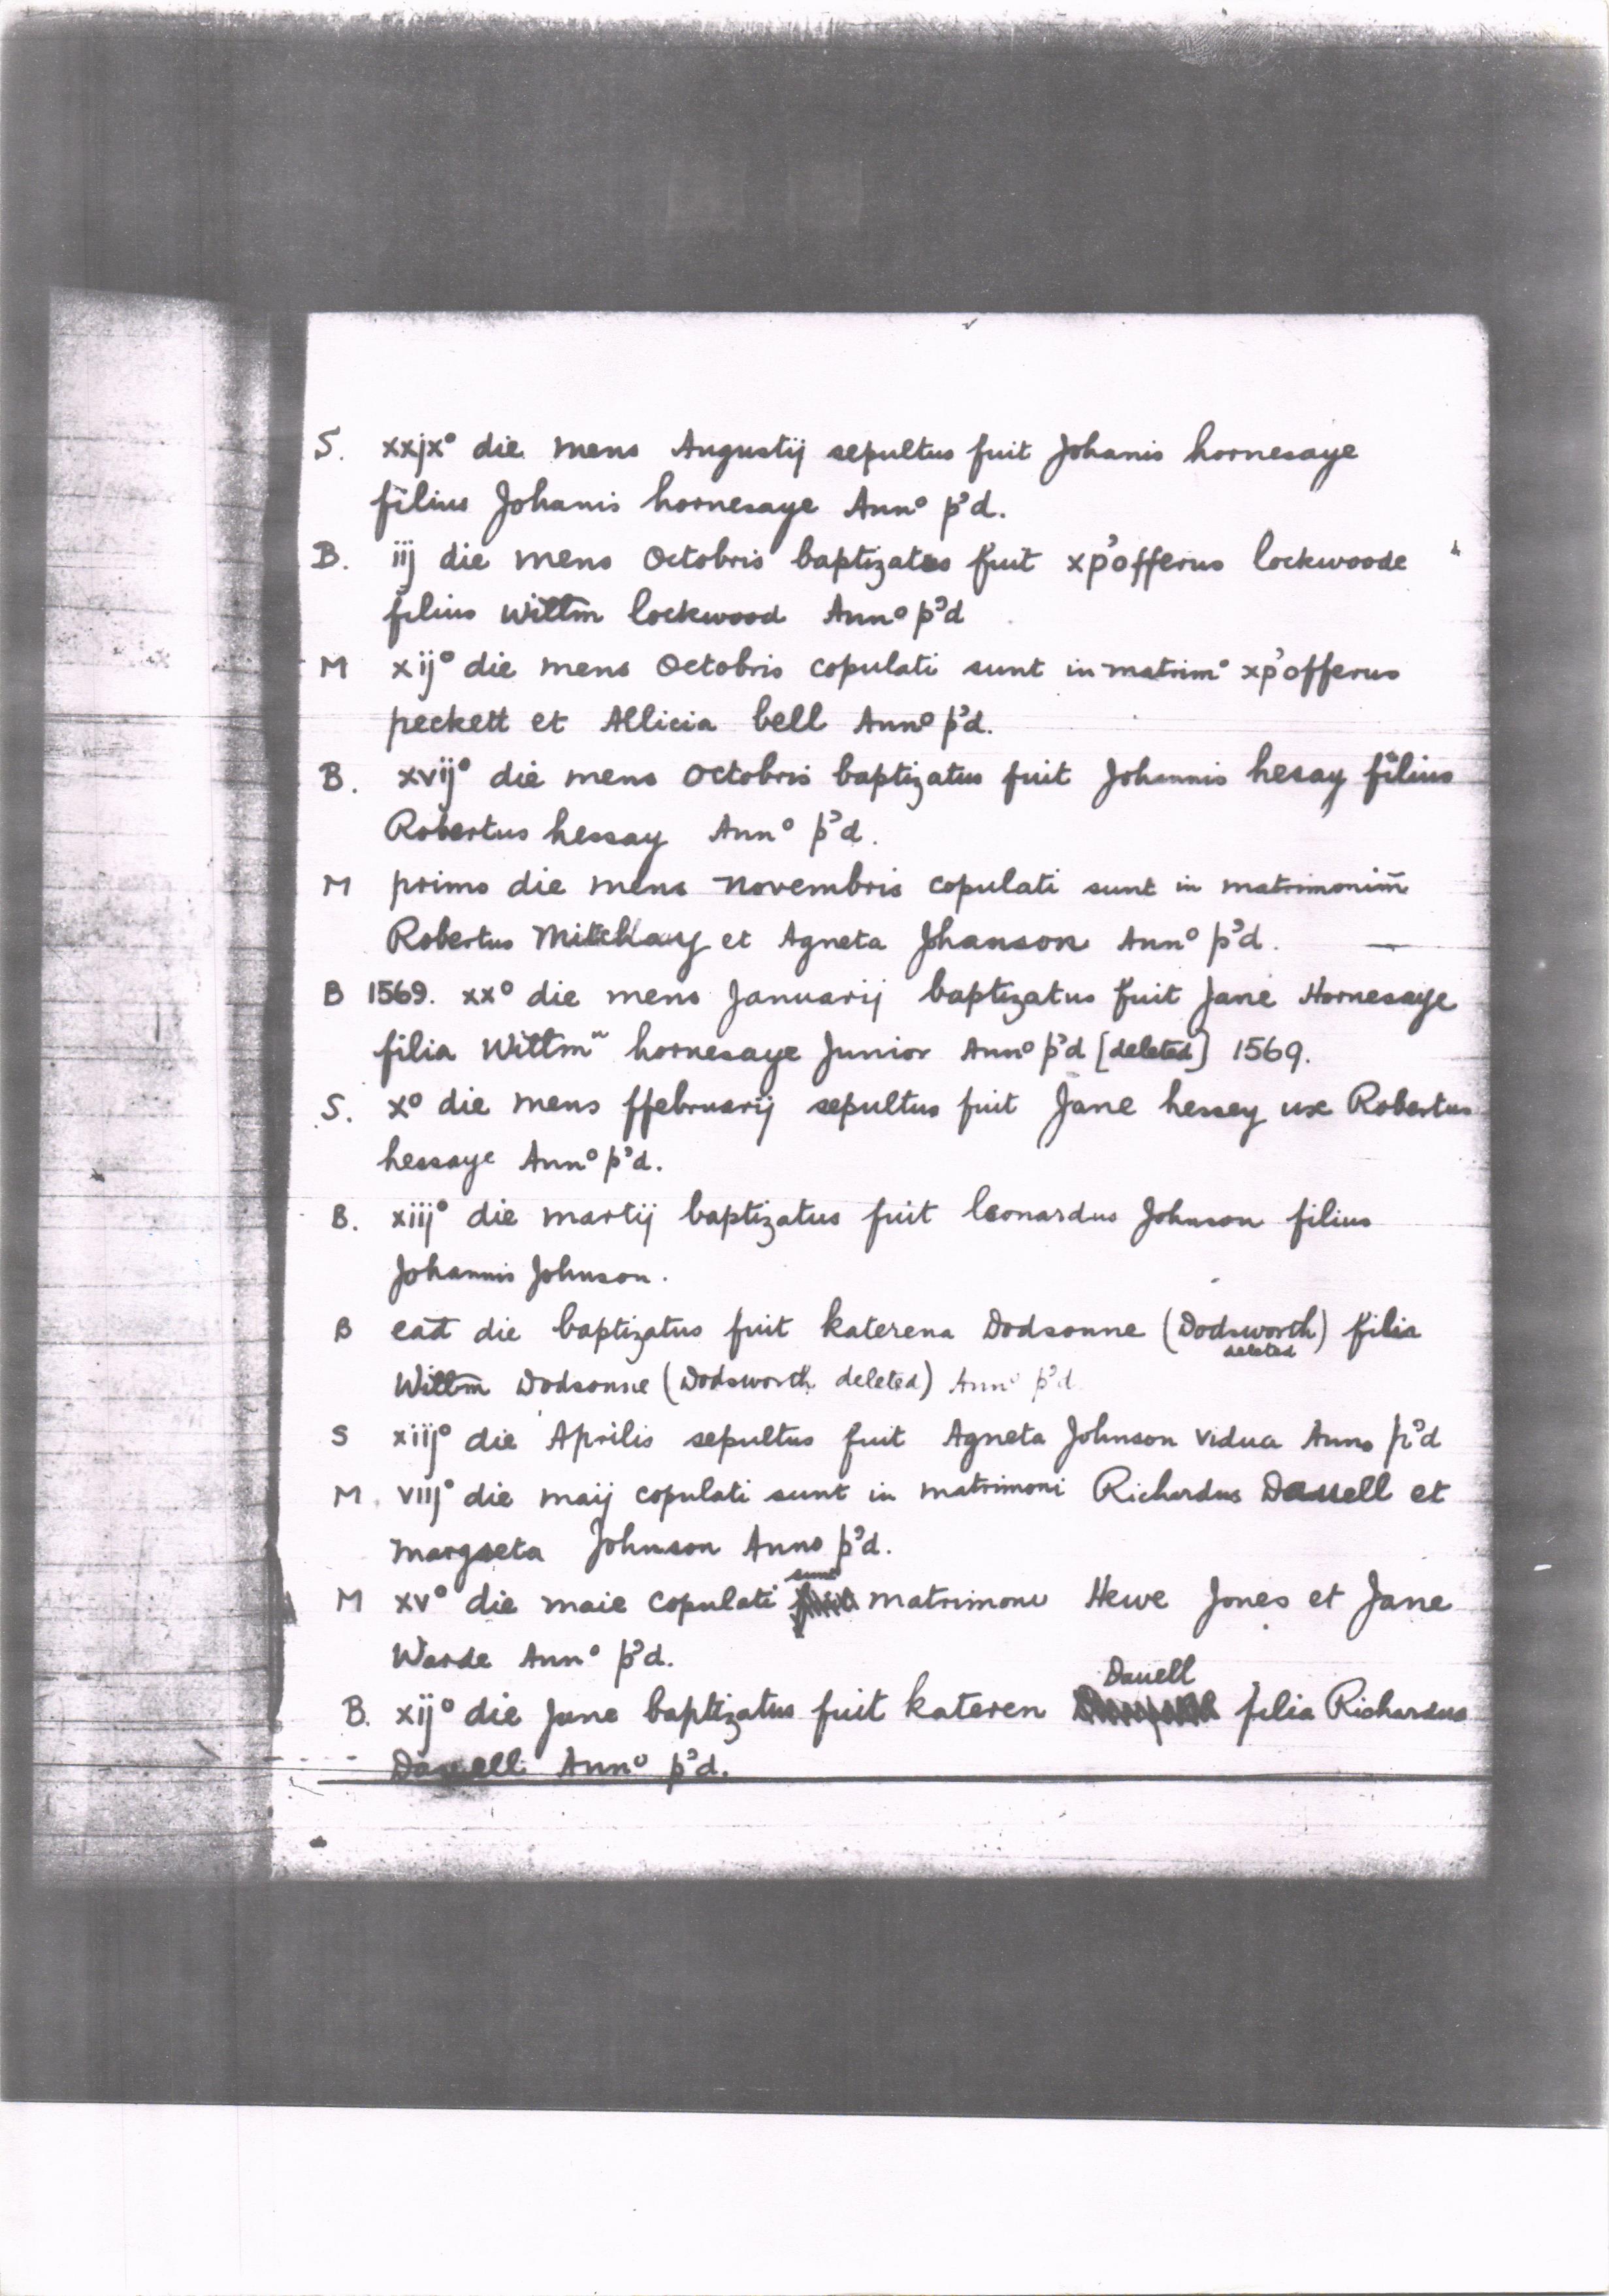 S. xxjxº die mens Augustij sepultus fuit Johanis hornesaye
filius Johanis hornesaye Annº p'd.
B. iij die mens Octobris baptizatus fuit xp'offerus lockwoode
filius Willm lockwood Annº p'd
M xijº die mens Octobris copulati sunt in matrimº xp'offerus
peckett et Allicia bell Annº p'd.
B. xvijº die mens Octobris baptizatus fuit Johannis hesay filius
Robertus hessay Annº p'd.
M primo die mens Novembris copulati sunt in matrimonim̄
Robertus et Agneta Jhanson Annº p'd.
B 1569. xxº die mens Januarij baptizatus fuit Jane Hornesaye
filia Willm hornesaye Junior Annº p'd [deleted] 1569.
S. xº die mens ffebruarij sepultus fuit Jane hessey ux Robertus
hessaye Annº p'd.
B. xiijº die martij baptizatus fuit leonardus Johnson filius
Johannis Johnson.
B die baptizatus fuit katerena Dodsonne (Dodsworth) filia
deleted
Willm Dodsonne (Dodsworth deleted) Annº p'd
S xiijº die Aprilis sepultus fuit Agneta Johnson vidua Anno p'd
M. viijº die maij copulati sunt in matrimoni Richardus Dauell et
Johnson Anno p'd.
sunt
M xvº die maie copulati fuit matrimoni Hewe Jones et Jane
Warde Annº p'd.
Dauell
B. xijº die June baptizatus fuit kateren filia Richardus
Dauell Annº p'd.